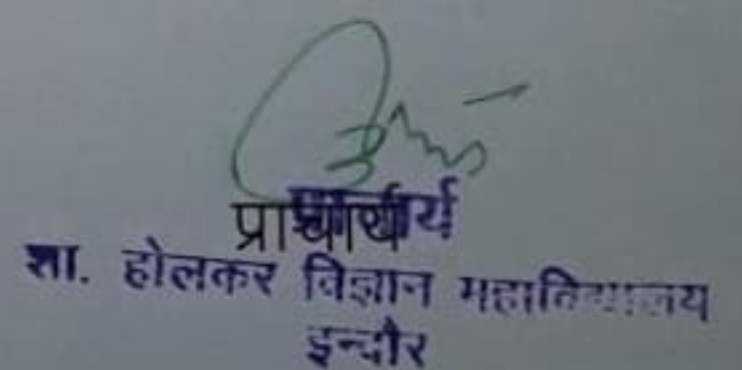 प्राचार्य
प्राचार्य
शा. होलकर विज्ञान महाविद्यालय
इन्दौर